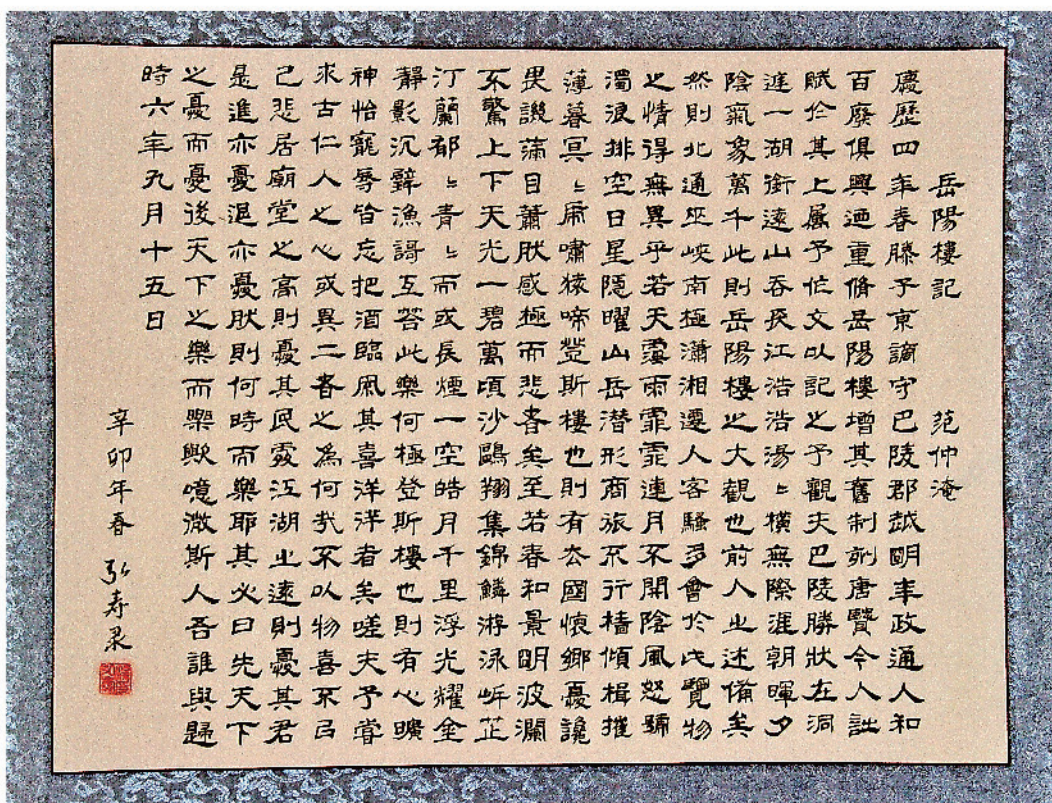 岳陽樓記 范仲淹
慶歷四年春滕子京謫守巴陵郡越明年政通人和
百廢俱興迺重脩岳陽樓增其舊制刻唐賢今人詩
賦於其上屬予作文以記之予觀夫巴陵勝狀在洞
遅一湖銜遠山吞長江浩浩湯〻橫無際涯朝暉夕
陰氣象萬千此則岳陽樓之大觀也前人之述備矣
然則北通巫峽南極瀟湘遷人客騷多會於此覽物
之情得無異乎若夫霪雨霏霏連月不開陰風怒號
濁浪排空日星隱曜山岳潛形商旅不行檣傾楫摧
薄暮冥〻虎嘯猿啼登斯樓也則有去國懷鄉憂讒
畏譏滿目蕭然感極而悲者矣至若春和景明波瀾
不驚上下天光一碧萬頃沙鷗翔集錦鱗游泳岸芷
汀蘭郁〻青〻而或長煙一空皓月千里浮光耀金
靜影沉璧漁謌互答此樂何極登斯樓也則有心曠
神怡寵辱皆忘把酒臨風其喜洋洋者矣嗟夫予嘗
求古仁人之心或異二者之為何哉不以物喜不以
己悲居廟堂之高則憂其民處江湖之遠則憂其君
是進亦憂退亦憂然則何時而樂耶其必曰先天下
之憂而憂後天下之樂而樂歟噫微斯人吾誰與歸
時六年九月十五日
辛卯年春 弘寿录